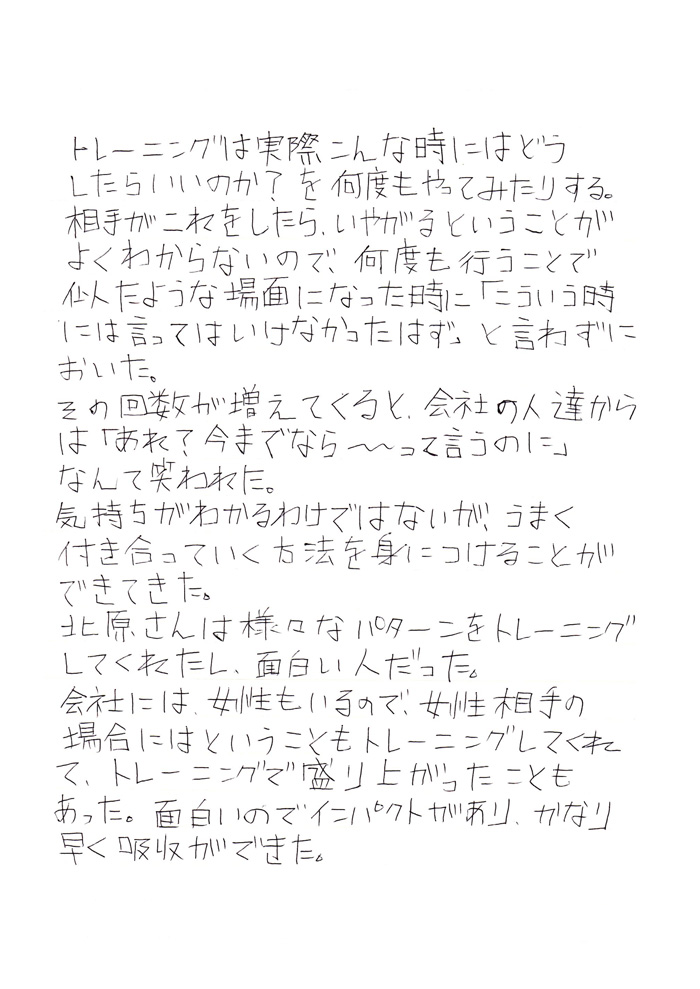 トレーニングは実際こんな時にはどう
したらいいのか?を何度もやってみたりする。
相手がこれをしたら、いやがるということが
よくわからないので、何度も行うことで
似たような場面になった時に「こういう時
には言ってはいけなかったはず」と言わずに
おいた。
その回数が増えてくると、会社の人達から
は「あれ?今までなら〜〜って言うのに」
なんて笑われた。
気持ちがわかるわけではないが、うまく
付き合っていく方法を身につけることが
できてきた。
北原さんは様々なパターンをトレーニング
してくれたし、面白い人だった。
会社には、女性もいるので、女性相手の
場合にはということもトレーニングしてくれ
て、トレーニングで盛り上がったことも
あった。面白いのでインパクトがあり、かなり
早く吸収ができた。